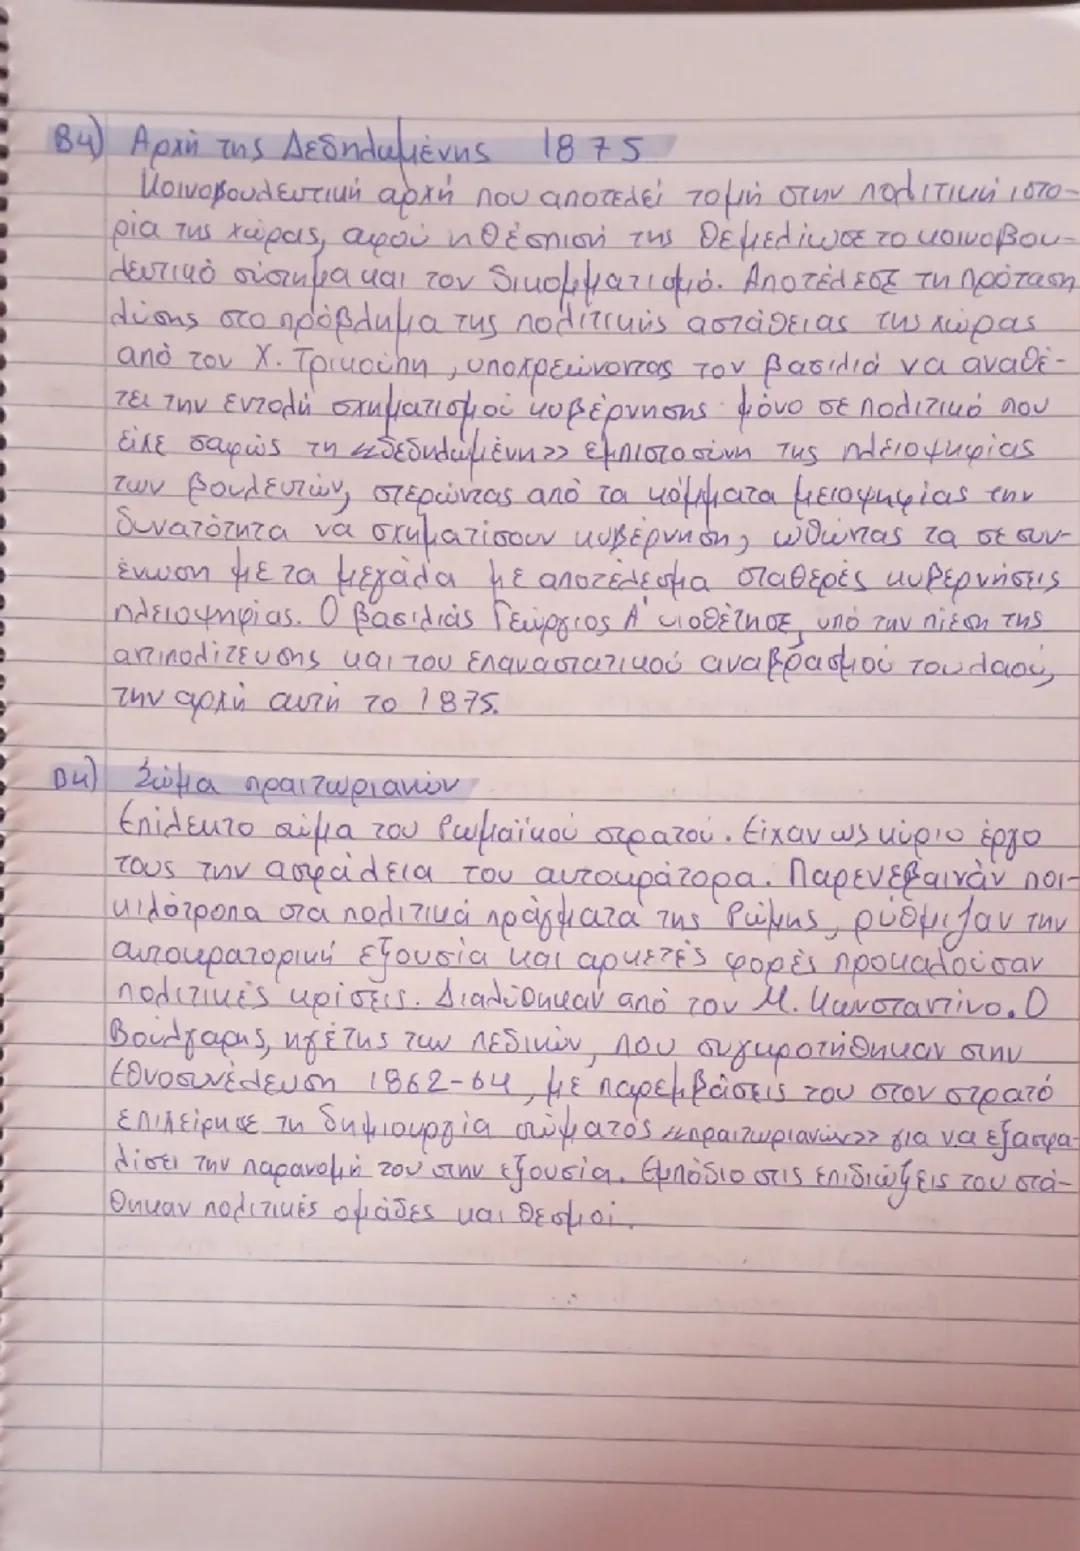 Β4) Αρχή της Δεδηλωμένης 1875
Κοινοβουλευτική αρχή που αποτελεί τομή στην πολιτική ιστο-
ρία της χώρας, αφού η θέσπισή της θεμελίωσε το κοινοβου-
λευτικό σύστημα και τον δικομματισμό. Αποτέλεσε τη πρόταση
λύσης στο πρόβλημα της πολιτικής αστάθειας της χώρας
από τον Χ. Τρικούπη, υποχρεώνοντας τον βασιλιά να αναθέ-
τει την εντολή σχηματισμού κυβέρνησης μόνο σε πολιτικό που
είχε σαφώς τη «δεδηλωμένη» εμπιστοσύνη της πλειοψηφίας
των βουλευτών, στερώντας από τα κόμματα μειοψηφίας την
δυνατότητα να σχηματίσουν κυβέρνηση, ωθώντας τα σε συν-
ένωση με τα μεγάλα με αποτέλεσμα σταθερές κυβερνήσεις
πλειοψηφίας. Ο βασιλιάς Γεώργιος Α' υιοθέτησε, υπό την πίεση της
αντιπολίτευσης και του επαναστατικού αναβρασμού του λαού,
την αρχή αυτή το 1875.
Β4) Σώμα πραιτωριανών
Επίλεκτο σώμα του Ρωμαϊκού στρατού. Είχαν ως κύριο έργο
τους την ασφάλεια του αυτοκράτορα. Παρενέβαιναν ποι-
κιλότροπα στα πολιτικά πράγματα της Ρώμης, ρύθμιζαν την
αυτοκρατορική εξουσία και αρκετές φορές προκαλούσαν
πολιτικές κρίσεις. Διαλύθηκαν από τον Μ. Κωνσταντίνο. Ο
Βούλγαρης, ηγέτης των πεδινών, που συγκροτήθηκαν στην
Εθνοσυνέλευση 1862-64, με παρεμβάσεις του στον στρατό
επιχείρησε τη δημιουργία σώματος «πραιτωριανών» για να εξασφα-
λίσει την παραμονή του στην εξουσία. Εμπόδιο στις επιδιώξεις του στά-
θηκαν πολιτικές ομάδες και θεσμοί.